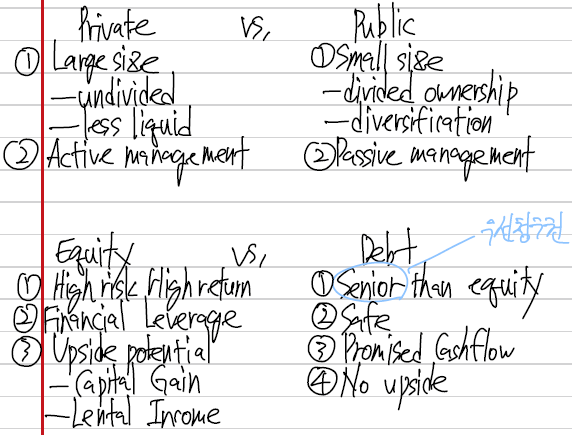 Private vs, Public
① Large size
— undivided
— less liquid
② Active management
① Small size
— divided ownership
— diversification
② Passive management
Equity vs, Debt
우선청구권
① High risk High return
② Financial Leverage
③ Upside potential
— Capital Gain
— Lental Income
① Senior than equity
② Safe
③ Promised Cashflow
④ No upside